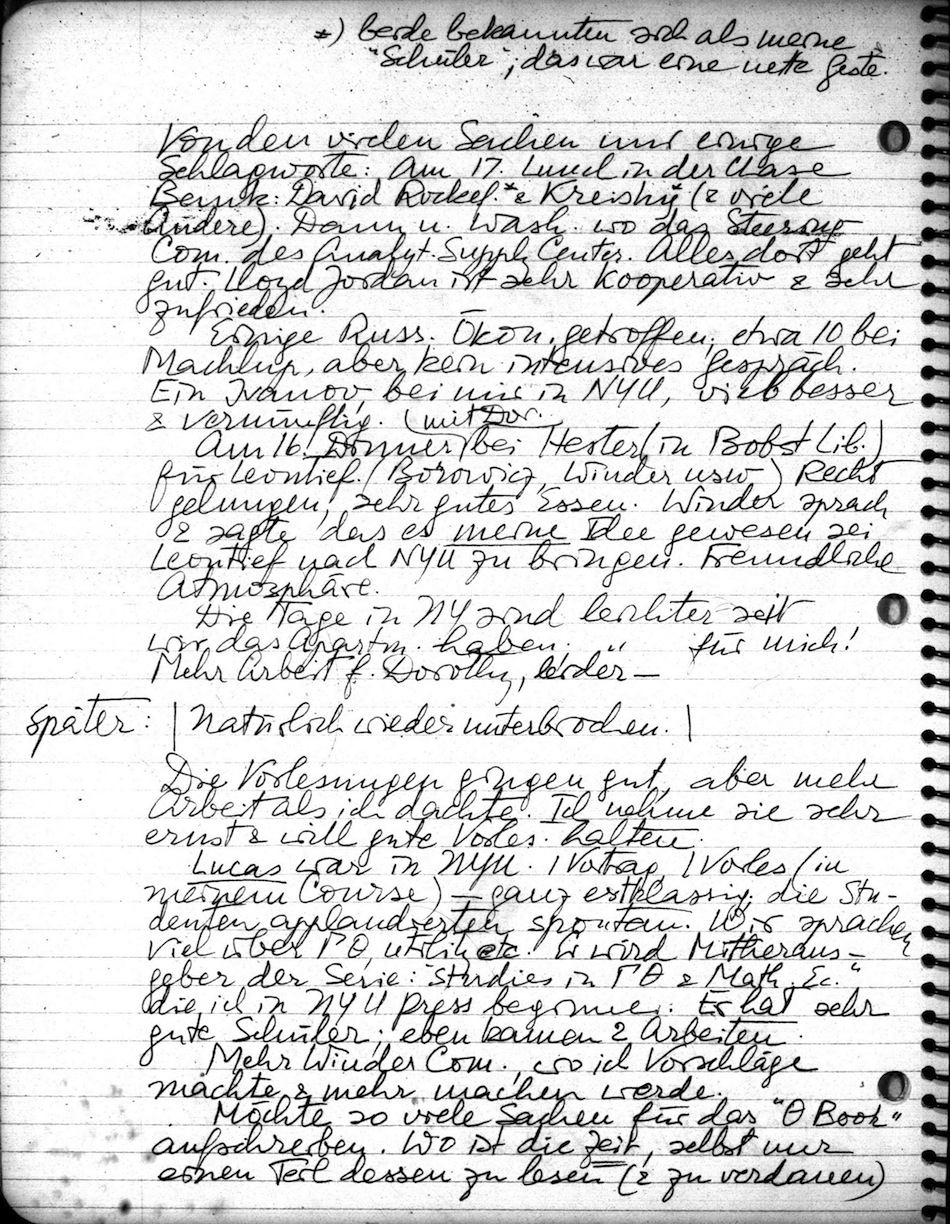 *) beide bekannten sich als meine
"Schüler", das war eine nette Geste.
Von den vielen Sachen nur einige
Schlagworte: Am 17. Lunch in der Chase
Bank: David Rockef.* & Kreisky* (& viele
Andere). Dann n. Wash. wo das Steering
Com. des Analyt. Supply Center. Alles dort geht
gut. Lloyd Jordan ist sehr kooperativ & sehr
zufrieden.
Einige Russ. Ökon. getroffen, etwa 10 bei
Machlup, aber kein intensives Gespräch.
Ein Ivanov, bei mir in NYU, viel besser
& vernünftig. (mit Dor.
Am 16. Dinner) bei Hester (in Bobst Lib.)
für Leontief. (Borowicz, Winder usw.) Recht
gelungen, sehr gutes Essen. Winder sprach
& sagte das es meine Idee gewesen sei
Leontief nach NYU zu bringen. Freundliche
Atmosphäre.
Die Tage in NY sind leichter seit
wir das Apartm. haben. " für mich!
Mehr Arbeit f. Dorothy, leider –
Später: | Natürlich wieder unterbrochen. |
Die Vorlesungen gingen gut, aber mehr
Arbeit als ich dachte. Ich nehme sie sehr
ernst & will gute Vorles. halten.
Lucas war in NYU. 1 Vortrag, 1 Vorles (in
meinem Course) – ganz erstklassig; die Stu-
denten applaudierten spontan. Wir sprachen
viel über ΓΘ, utility etc. Er wird Mitheraus-
geber der Serie: "Studies in ΓΘ & Math. Ec."
die ich in NYU Press beginne. Er hat sehr
gute Schüler; eben kamen 2 Arbeiten.
Mehr Winder Com., wo ich Vorschläge
machte & mehr machen werde.
Möchte so viele Sachen für das "Θ Book"
aufschreiben. Wo ist die Zeit, selbst nur
einen Teil dessen zu lesen (& zu verdauen)